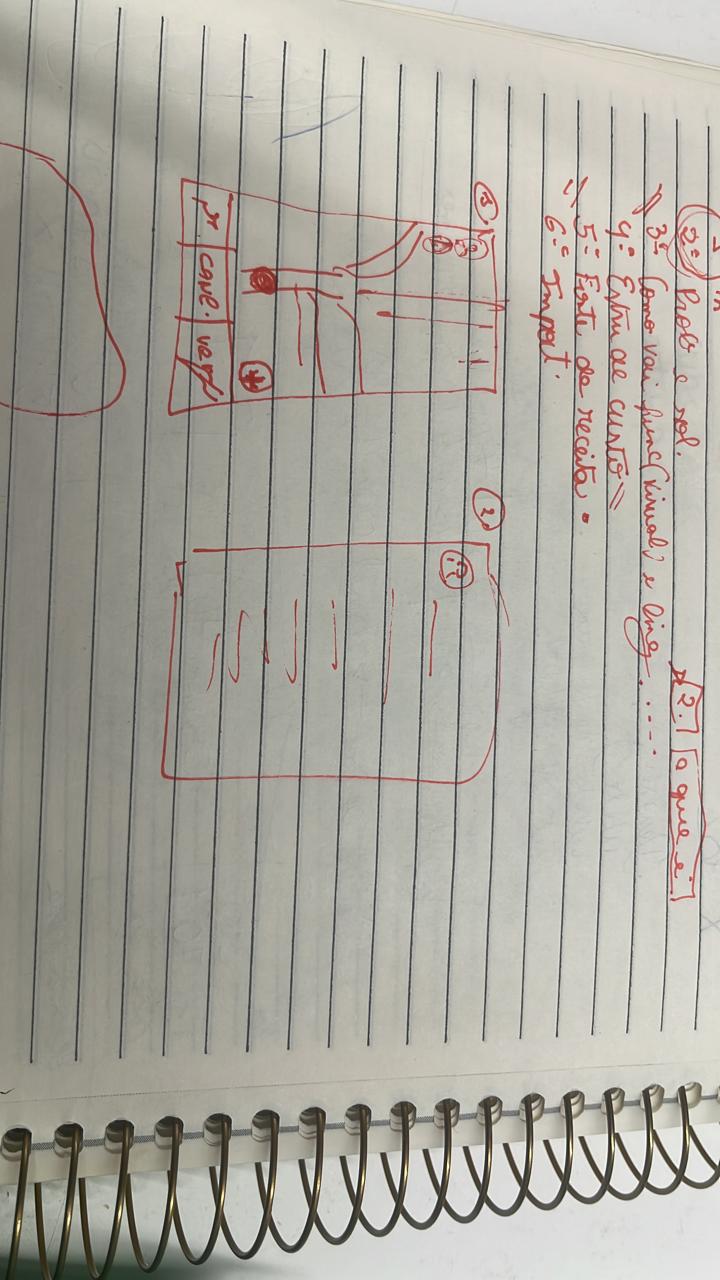 2º Prob e sol.
2. o que é
3º Como vai func(visual) e ling.....
4º Estru de custo
5º Fonte de receita
6º Import.
2
cane.